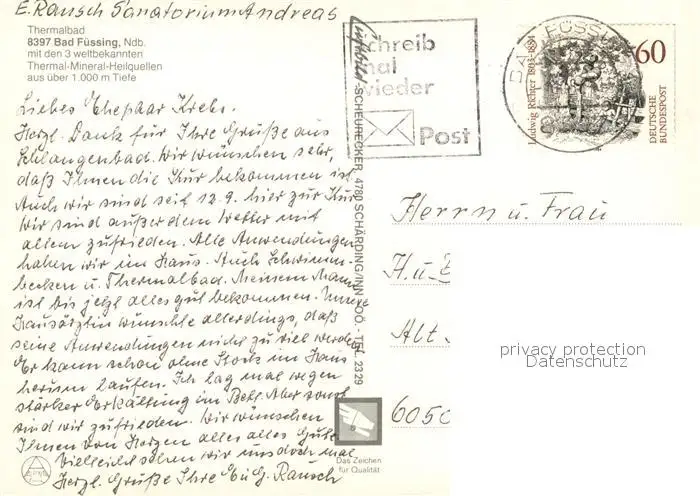 E. Rausch Sanatorium Andreas
Thermalbad
8397 Bad Füssing, Ndb.
mit den 3 weltbekannten
Thermal-Mineral-Heilquellen
aus über 1.000 m Tiefe
Liebes Ehepaar Krebs.
Herzl. Dank für Ihre Grüße aus
Schlangenbad. Wir wünschen sehr,
daß Ihnen die Kur bekommen ist.
Auch wir sind seit 12.9. hier zur Kur
Wir sind außer dem Wetter mit
allem zufrieden. Alle Anwendungen
haben wir im Haus. Auch Schwimm-
becken u. Thermalbad. Meinem Mann
ist bis jetzt alles gut bekommen. Unsere
Hausärztin wünschte allerdings, daß
seine Anwendungen nicht zu viel werden.
Er kann schon ohne Stock im Haus
herum laufen. Ich lag mal wegen
stärker Erkältung im Bett. Aber sonst
sind wir zufrieden. Wir wünschen
Ihnen von Herzen alles alles Gute
Vielleicht sehen wir uns doch mal
Herzl. Grüße Ihre E. u. G. Rausch
Luftbild
SCHEURECKER, 4780 SCHÄRDING/INN, OÖ. - TEL. 2329
Schreib
mal
wieder
Post
BAD FÜSSI
Ludwig Richter 1803-1884
60
DEUTSCHE
BUNDESPOST
Herrn u. Frau
H. u.
Alt
6050
privacy protection
Datenschutz
Das Zeichen
für Qualität